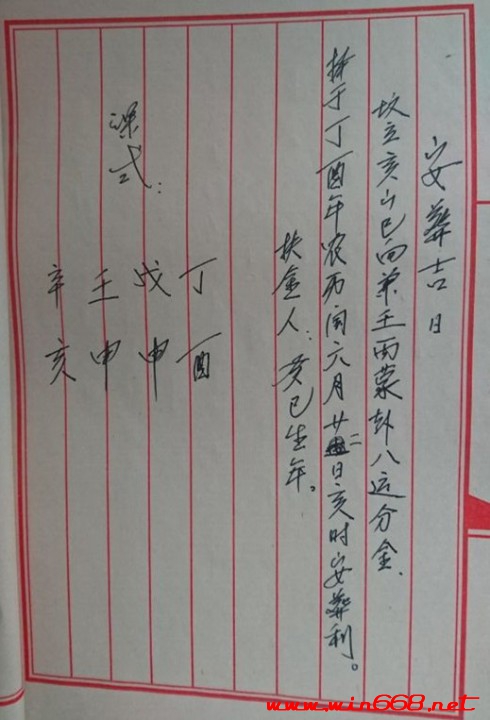 安葬吉日
坟立亥山巳向兼壬丙蒙卦八运分金.
择于丁酉年农历闰六月廿二日亥时安葬利。
扶金人:癸巳生年。
课式:
丁酉
戊申
壬申
辛亥
www.win668.net